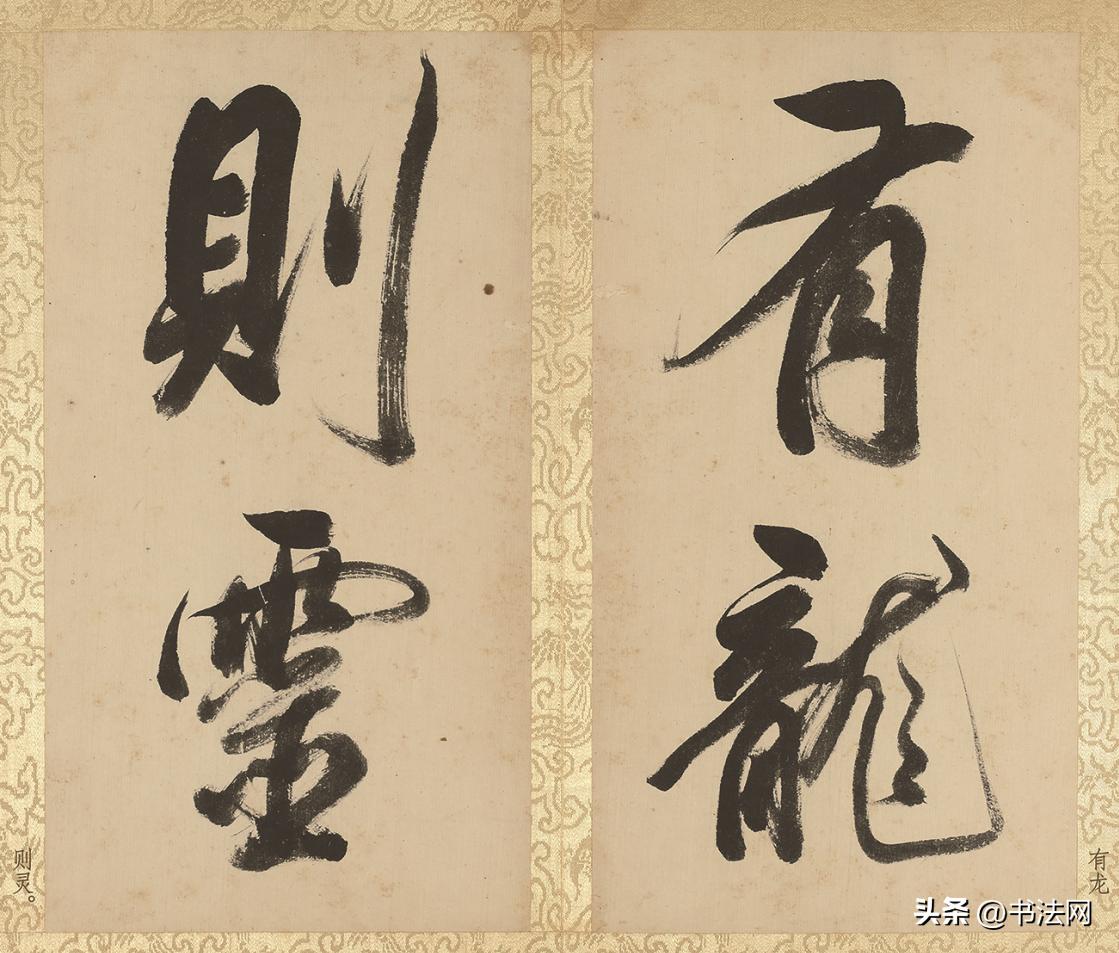 有龍
則靈
有龙
则灵。
头条 @书法网